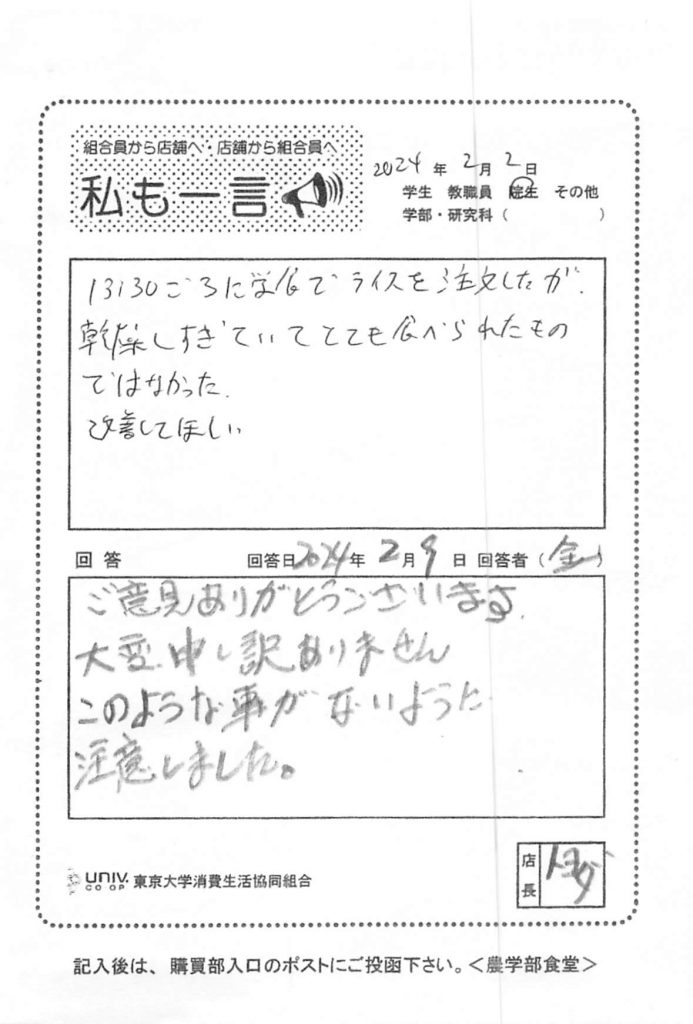 組合員から店舗へ・店舗から組合員へ
私も一言
2024 年 2月 2日
学生 教職員 院生 その他
学部・研究科（ ）
13:30ごろに学食でライスを注文したが、
乾燥しすぎていてとても食べられたもの
ではなかった。
改善してほしい
回答 回答日2024年 2月9日 回答者（金）
ご意見ありがとうございます。
大変申し訳ありません
このような事がないように
注意しました。
UNIV.
CO-OP
東京大学消費生活協同組合
店長
記入後は、購買部入口のポストにご投函下さい。＜農学部食堂＞